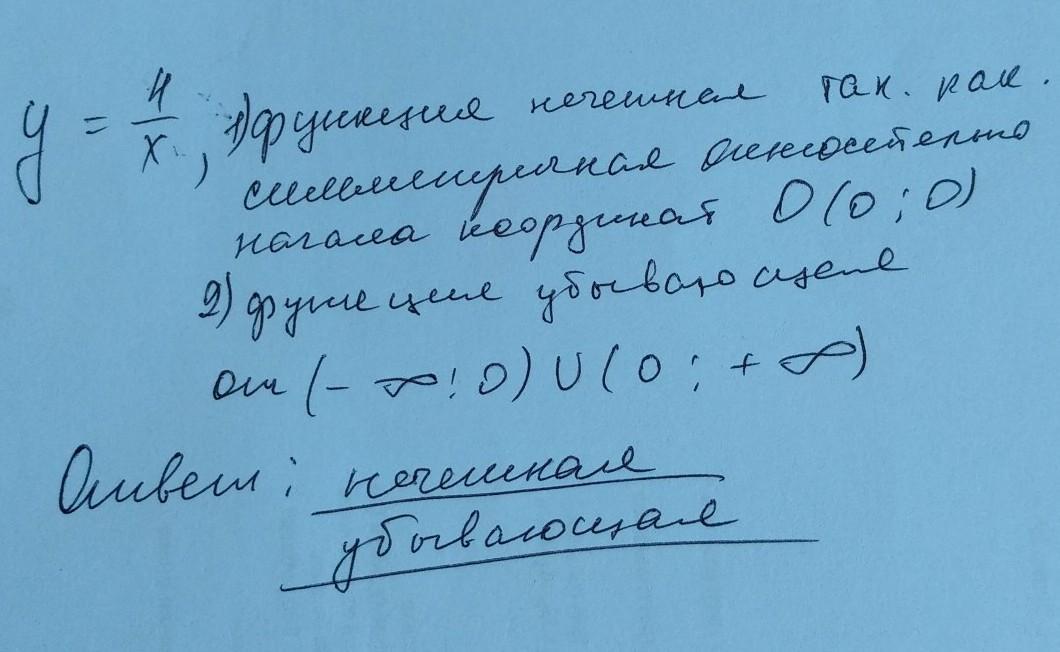 y = 4/x, 1) функция нечетная так. как.
симметричная относительно
начала координат O(0;0)
2) функция убывающая
от (-∞;0) U (0;+∞)
Ответ: нечетная
убывающая